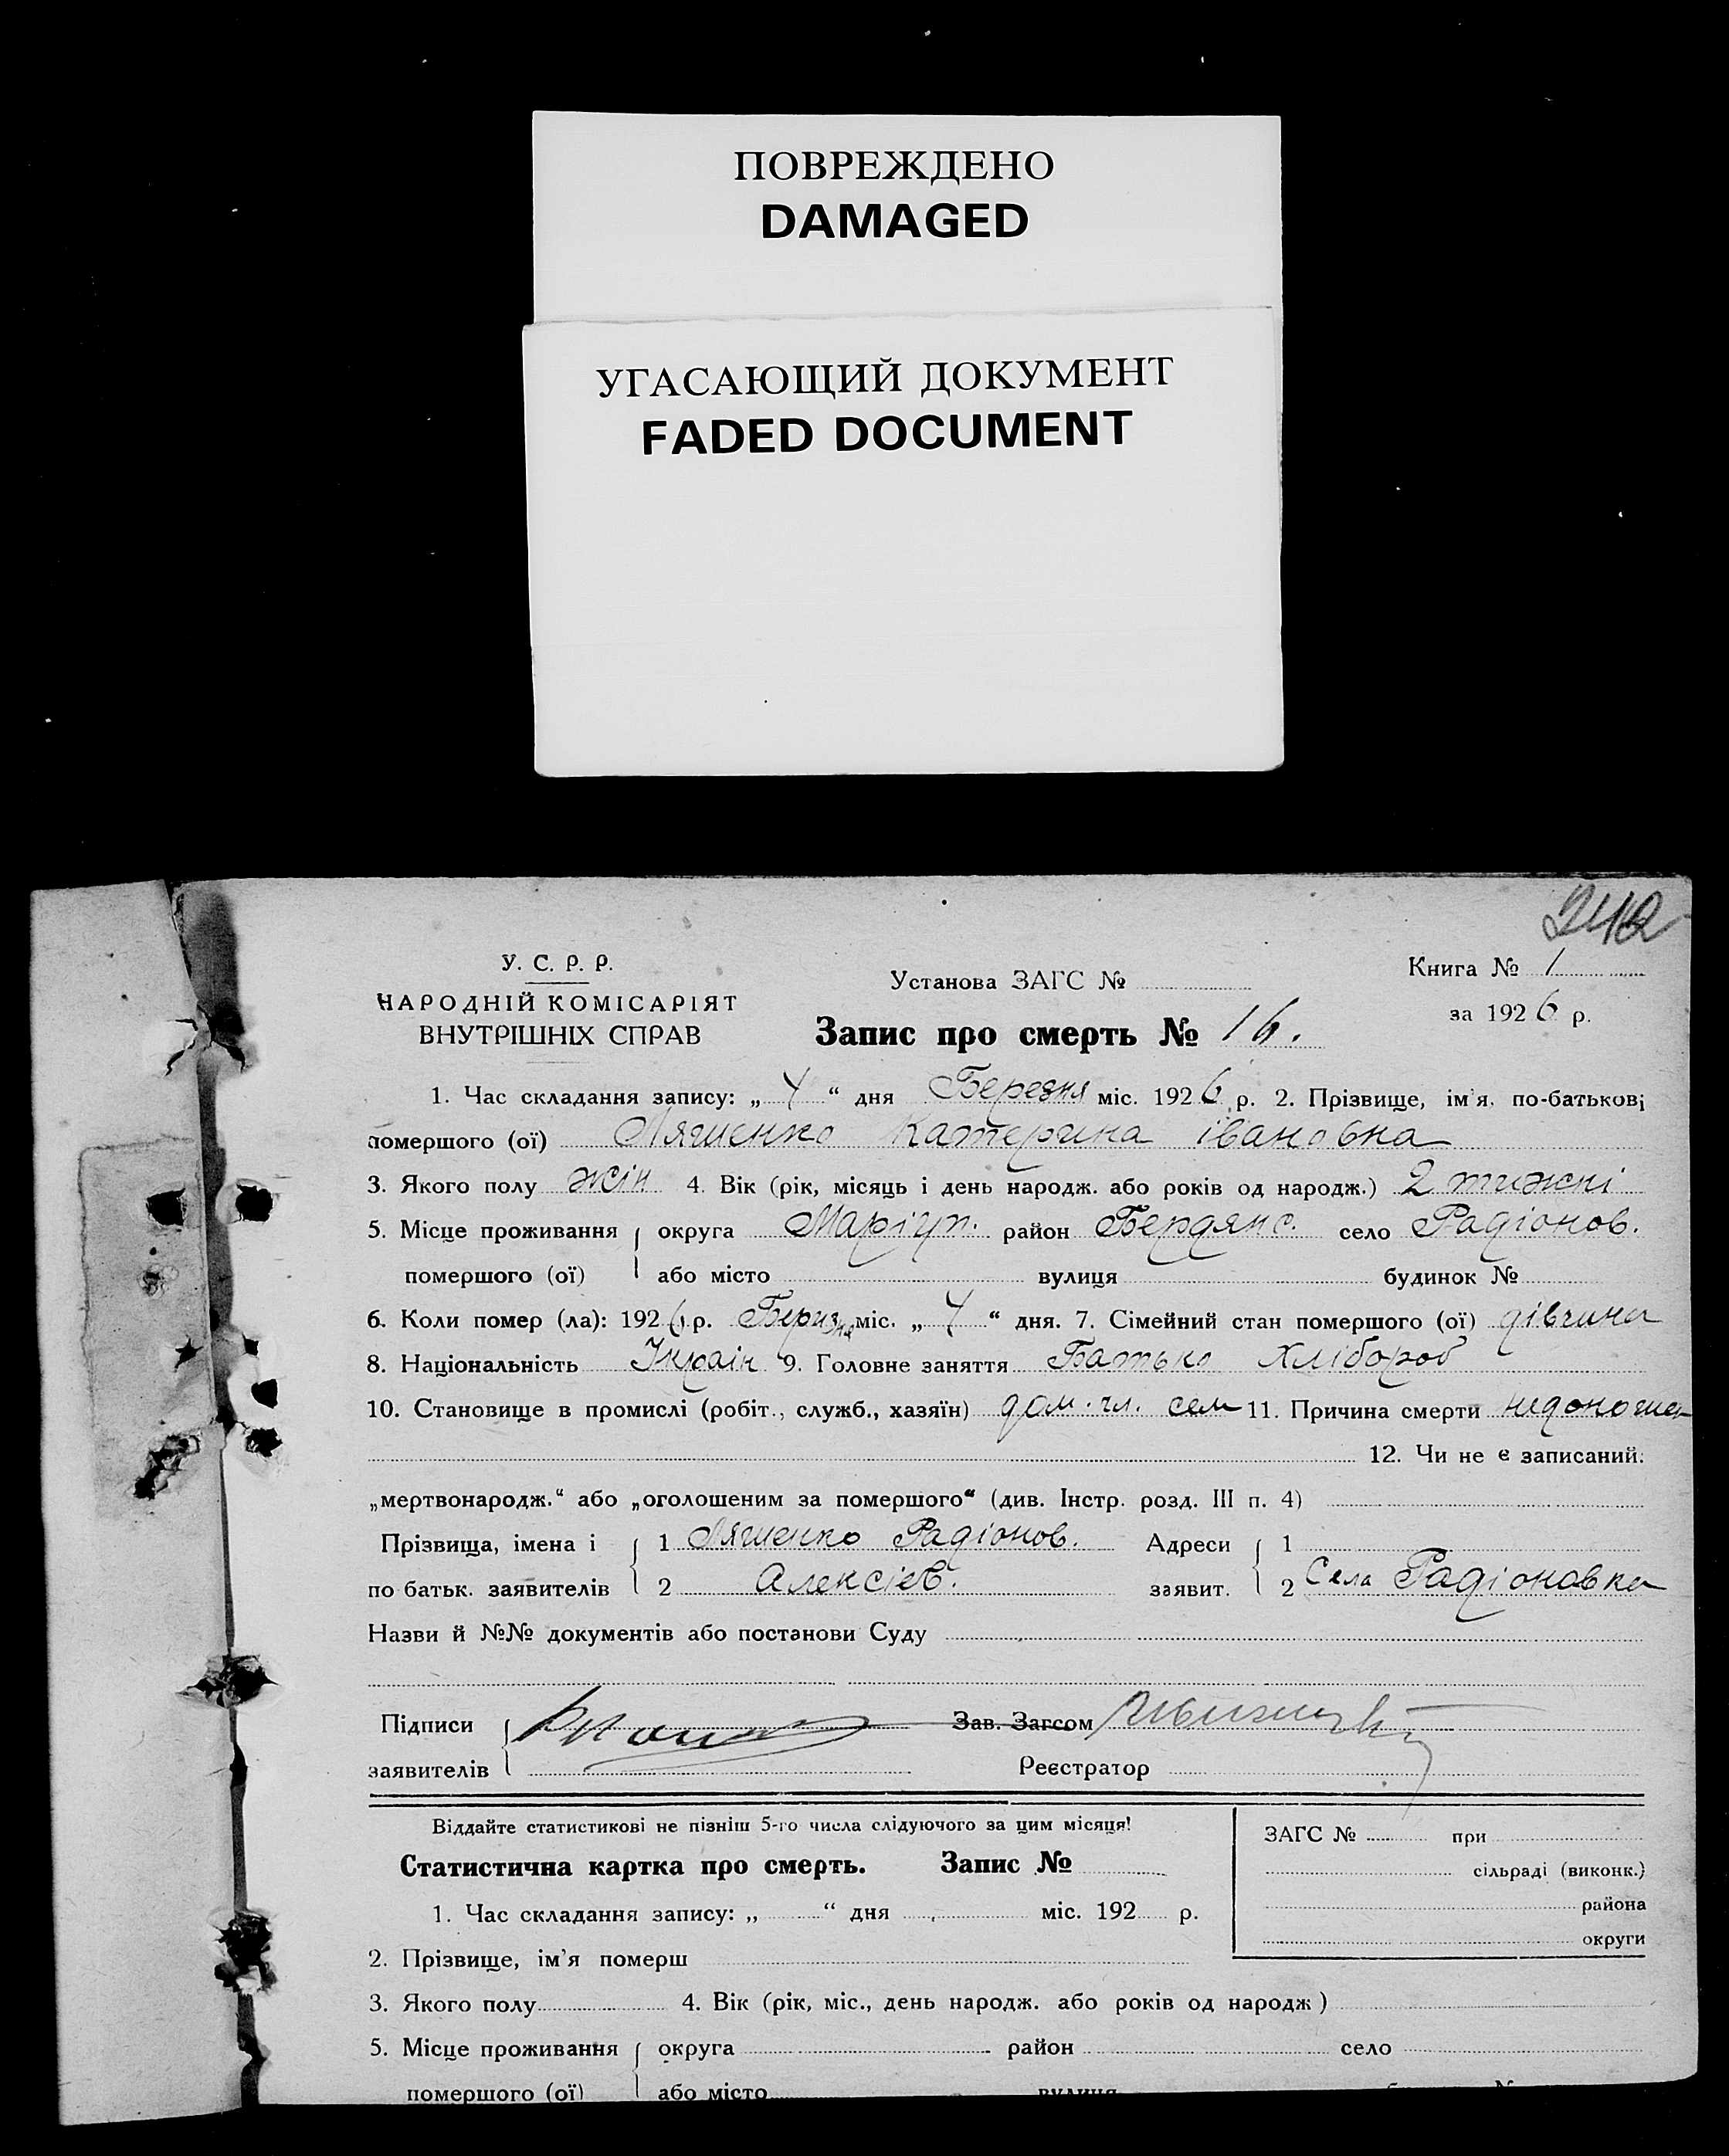 ПОВРЕЖДЕНО
DAMAGED
УГАСАЮЩИЙ ДОКУМЕНТ
FADED DOCUMENT
242
У. С. Р. Р.
НАРОДНІЙ КОМІСАРІЯТ
ВНУТРІШНІХ СПРАВ
Установа ЗАГС №
Запис про смерть № 16.
Книга № 1
за 1926 р.
1. Час складання запису: „ 4 “ дня Березня міс. 1926 р. 2. Прізвище, ім'я, по-батькові
помершого (ої) Ляшенко Катерина Івановна
3. Якого полу жін 4. Вік (рік, місяць і день народж. або років од народж.) 2 тижні
5. Місце проживання округа Маріуп. район Бердянс. село Радіонов.
помершого (ої) або місто вулиця будинок №
6. Коли помер (ла): 1926 р. Беризня міс. „ 4 “ дня. 7. Сімейний стан помершого (ої) дівчина
8. Національність Україн 9. Головне заняття Батько Хлібороб
10. Становище в промислі (робіт., служб., хазяїн) дом. чл. сем 11. Причина смерти
12. Чи не є записаний:
„мертвонародж.“ або „оголошеним за помершого“ (див. Інстр. розд. III п. 4)
Прізвища, імена і 1 Ляшенко Радіонов. Адреси 1
по батьк. заявителів 2 Алексієв. заявит. 2 Села Радіоновка
Назви й №№ документів або постанови Суду
Підписи Зав. Загсом
заявителів Реєстратор
Віддайте статистикові не пізніш 5-го числа слідуючого за цим місяця!
Статистична картка про смерть. Запис №
ЗАГС № при
сільраді (виконк.)
района
округи
1. Час складання запису: „ “ дня міс. 192 р.
2. Прізвище, ім'я померш
3. Якого полу 4. Вік (рік, міс., день народж. або років од народж )
5. Місце проживання округа район село
помершого (ої) або місто вулиця